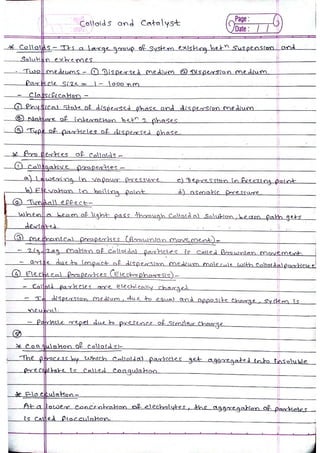 Colloids and Catalyst
Page :
Date : / /
* Colloids - Its a large group of system existing betn suspension and
solution extremes
- Two mediums - ① Dispersed medium ② Dispersion medium
Particle size = 1 - 1000 nm
- Classification -
① Physical state of dispersed phase and dispersion medium
② Nature of interaction betn 2 phases
③ Type of particles of dispersed phase.
* Properties of Colloids -
① Colligative properties -
a) Lowering in vapour pressure c) Depression in freezing point
b) Elevation in boiling point d) osmotic pressure
② Tyndall effect -
When a beam of light pass through colloidal solution, beam path gets
deviated
③ mechanical properties (Brownian movement) -
- zig-zag motion of colloidal particles is called Brownian movement
- arise due to impact of dispersion medium molecule with colloidal particle
④ Electrical Properties (Electrophoresis) -
- Colloid particles are electrically charged
- In dispersion medium, due to equal and opposite charge, system is
neutral.
- Particle repel due to presence of similar charge
* Coagulation of colloids :-
The process by which colloidal particles get aggregated into insoluble
precipitate is called coagulation.
* Flocculation -
At a lower concentration of electrolytes, the aggregation of particles
is called flocculation.